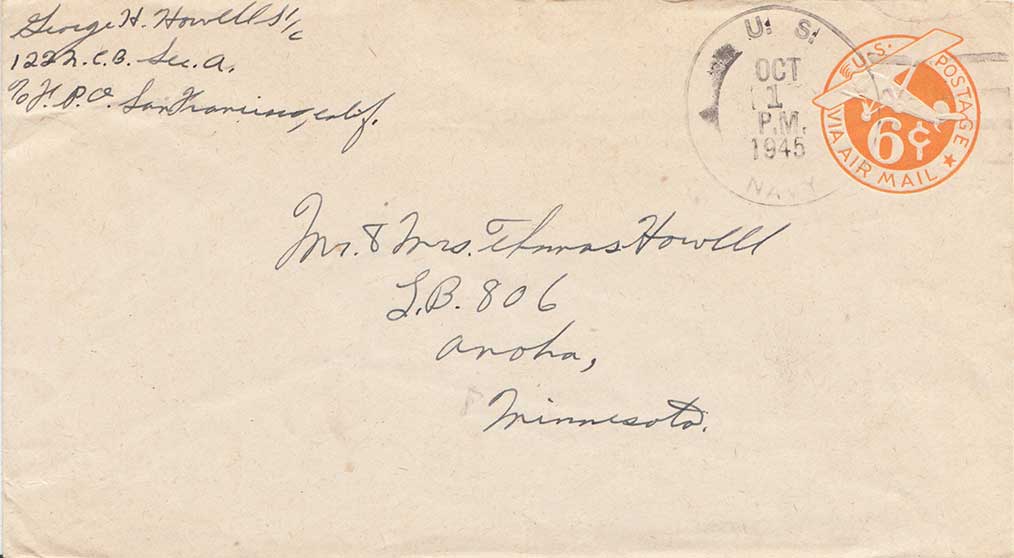 George H. Howell S 1/c
122 N.C.B. Sec. A.
% F. P.O. San Francisco, Calif.
U. S.
OCT
1
P.M.
1945
NAVY
U.S. POSTAGE
6¢
VIA AIR MAIL
Mr. & Mrs. Thomas Howell
L.B. 806
Anoka,
Minnesota.